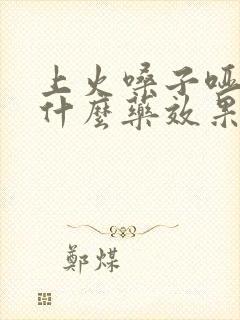 上火嗓子哑
什麼藥效果
鄭煤